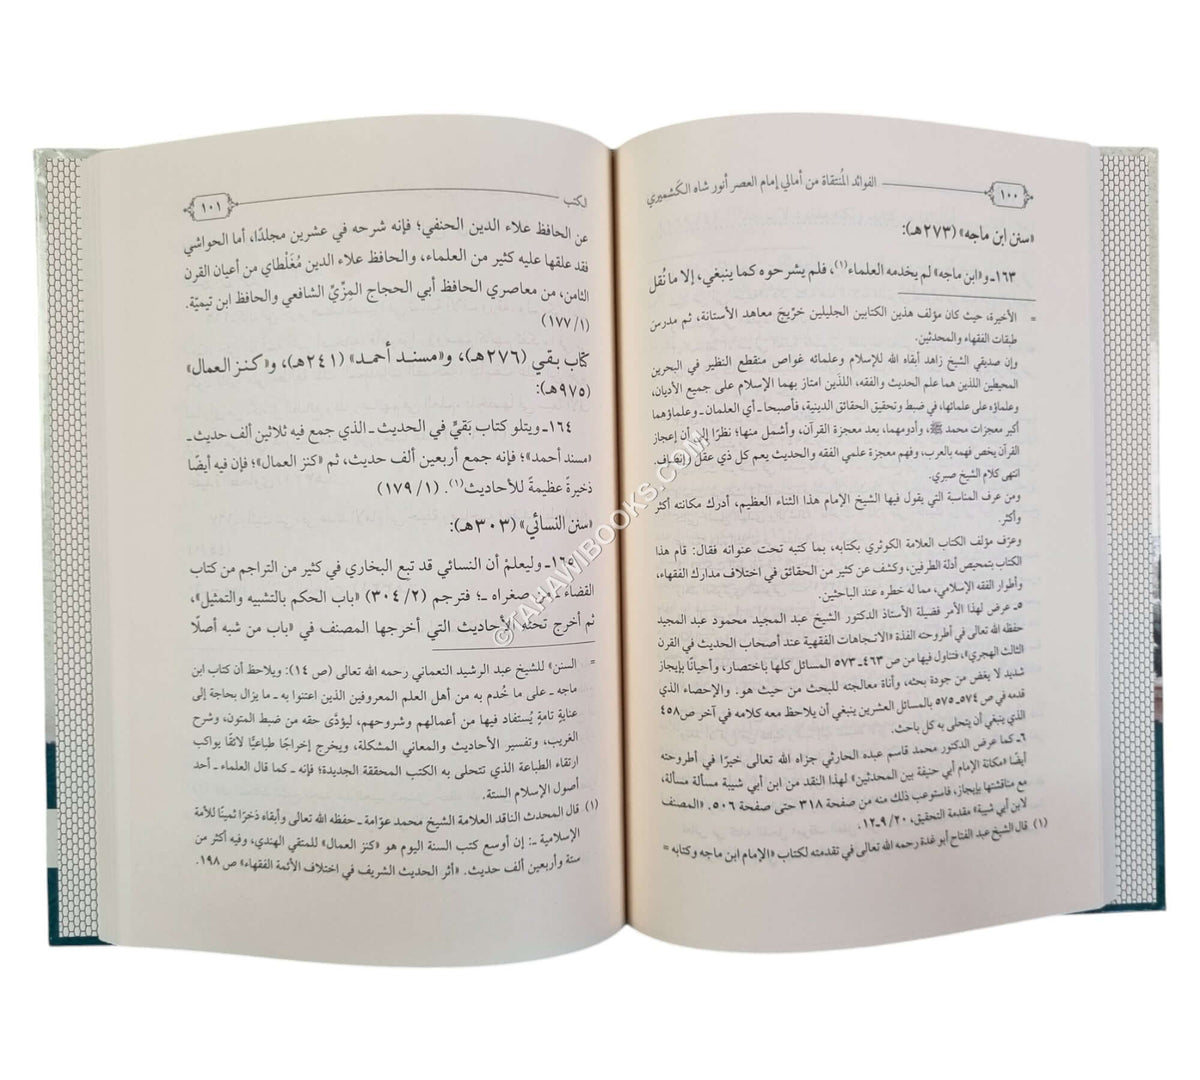 ١٠٠
الفوائد المُنتقاة من أمالي إمام العصر أنور شاه الكَشميري
«سنن ابن ماجه» (٢٧٣هـ):
١٦٣ـ و«ابن ماجه» لم يخدمه العلماء(١)، فلم يشرحوه كما ينبغي، إلا ما نُقل
= الأخيرة، حيث كان مؤلف هذين الكتابين الجليلين خرّيجَ معاهد الأستانة، ثم مدرس
طبقات الفقهاء والمحدثين.
وإن صديقي الشيخ زاهد أبقاه الله للإسلام وعلمائه غواص منقطع النظير في البحرين
المحيطين اللذين هما علم الحديث والفقه، اللذين امتاز بهما الإسلام على جميع الأديان،
وعلماؤه على علمائها، في ضبط وتحقيق الحقائق الدينية، فأصبحا ـ أي العلمان ـ وعلماؤهما
أكبر معجزات محمد ﷺ، وأدومهما، بعد معجزة القرآن، وأشمل منها؛ نظرًا إلى أن إعجاز
القرآن يخص فهمه بالعرب، وفهم معجزة علمي الفقه والحديث يعم كل ذي عقل وإنصاف.
انتهى كلام الشيخ صبري.
ومن عرف المناسبة التي يقول فيها الشيخ الإمام هذا الثناء العظيم، أدرك مكانته أكثر
وأكثر.
وعرّف مؤلف الكتاب العلامة الكوثري بكتابه، بما كتبه تحت عنوانه فقال: قام هذا
الكتاب بتمحيص أدلة الطرفين، وكشف عن كثير من الحقائق في اختلاف مدارك الفقهاء،
وأطوار الفقه الإسلامي، مما له خطره عند الباحثين.
٥ـ عرض لهذا الأمر فضيلة الأستاذ الدكتور الشيخ عبد المجيد محمود عبد المجيد
حفظه الله تعالى في أطروحته الفذة «الاتجاهات الفقهية عند أصحاب الحديث في القرن
الثالث الهجري»، فتناول فيها من ص٤٦٣ـ٥٧٣ المسائل كلها باختصار، وأحيانًا بإيجاز
شديد لا يغض من جودة بحثه، وأناة معالجته للبحث من حيث هو. والإحصاء الذي
قدمه في ص٥٧٤ـ٥٧٥ بالمسائل العشرين ينبغي أن يلاحظ معه كلامه في آخر ص٤٥٨
الذي ينبغي أن يتحلى به كل باحث.
٦ـ كما عرض الدكتور محمد قاسم عبده الحارثي جزاه الله تعالى خيرًا في أطروحته
أيضًا «مكانة الإمام أبي حنيفة بين المحدثين» لهذا النقد من ابن أبي شيبة مسألة مسألة،
مع مناقشتها بإيجاز، فاستوعب ذلك منه من صفحة ٣١٨ حتى صفحة ٥٠٦. «المصنف
لابن أبي شيبة» مقدمة التحقيق، ٢٠/ ٩ـ١٢.
(١) قال الشيخ عبد الفتاح أبو غدة رحمه الله تعالى في تقدمته لكتاب «الإمام ابن ماجه وكتابه =
لكتب
١٠١
عن الحافظ علاء الدين الحنفي؛ فإنه شرحه في عشرين مجلدًا، أما الحواشي
فقد علقها عليه كثير من العلماء، والحافظ علاء الدين مُغَلْطاي من أعيان القرن
الثامن، من معاصري الحافظ أبي الحجاج المِزّي الشافعي والحافظ ابن تيميّة.
(١/ ١٧٧)
كتاب بقي (٢٧٦هـ)، و«مسند أحمد» (٢٤١هـ)، و«كنز العمال»
(٩٧٥هـ):
١٦٤ـ ويتلو كتاب بَقيٍّ في الحديث ـ الذي جمع فيه ثلاثين ألف حديث ـ
«مسند أحمد»؛ فإنه جمع أربعين ألف حديث، ثم «كنز العمال»؛ فإن فيه أيضًا
ذخيرةً عظيمةً للأحاديث(١). (١/ ١٧٩)
«سنن النسائي» (٣٠٣هـ):
١٦٥ـ وليعلمْ أن النسائي قد تبع البخاري في كثير من التراجم من كتاب
القضاء ـ من صغراه ـ؛ فترجم (٢/ ٣٠٤) «باب الحكم بالتشبيه والتمثيل»،
ثم أخرج تحته الأحاديث التي أخرجها المصنف في «باب من شبه أصلًا
= السنن» للشيخ عبد الرشيد النعماني رحمه الله تعالى (ص ١٤): ويلاحظ أن كتاب ابن
ماجه ـ على ما خُدم به من أهل العلم المعروفين الذين اعتنوا به ـ ما يزال بحاجة إلى
عناية تامةٍ يُستفاد فيها من أعمالهم وشروحهم، ليؤدَّى حقه من ضبط المتون، وشرح
الغريب، وتفسير الأحاديث والمعاني المشكلة، ويخرج إخراجًا طباعيًّا لائقًا يواكب
ارتقاء الطباعة الذي تتحلى به الكتب المحققة الجديدة؛ فإنه ـ كما قال العلماء ـ أحد
أصول الإسلام الستة.
(١) قال المحدث الناقد العلامة الشيخ محمد عوّامة ـ حفظه الله تعالى وأبقاه ذخرًا ثمينًا للأمة
الإسلامية ـ: إن أوسع كتب السنة اليوم هو «كنز العمال» للمتقي الهندي، وفيه أكثر من
ستة وأربعين ألف حديث. «أثر الحديث الشريف في اختلاف الأئمة الفقهاء» ص ١٩٨.
©TAHAWIBOOKS.COM